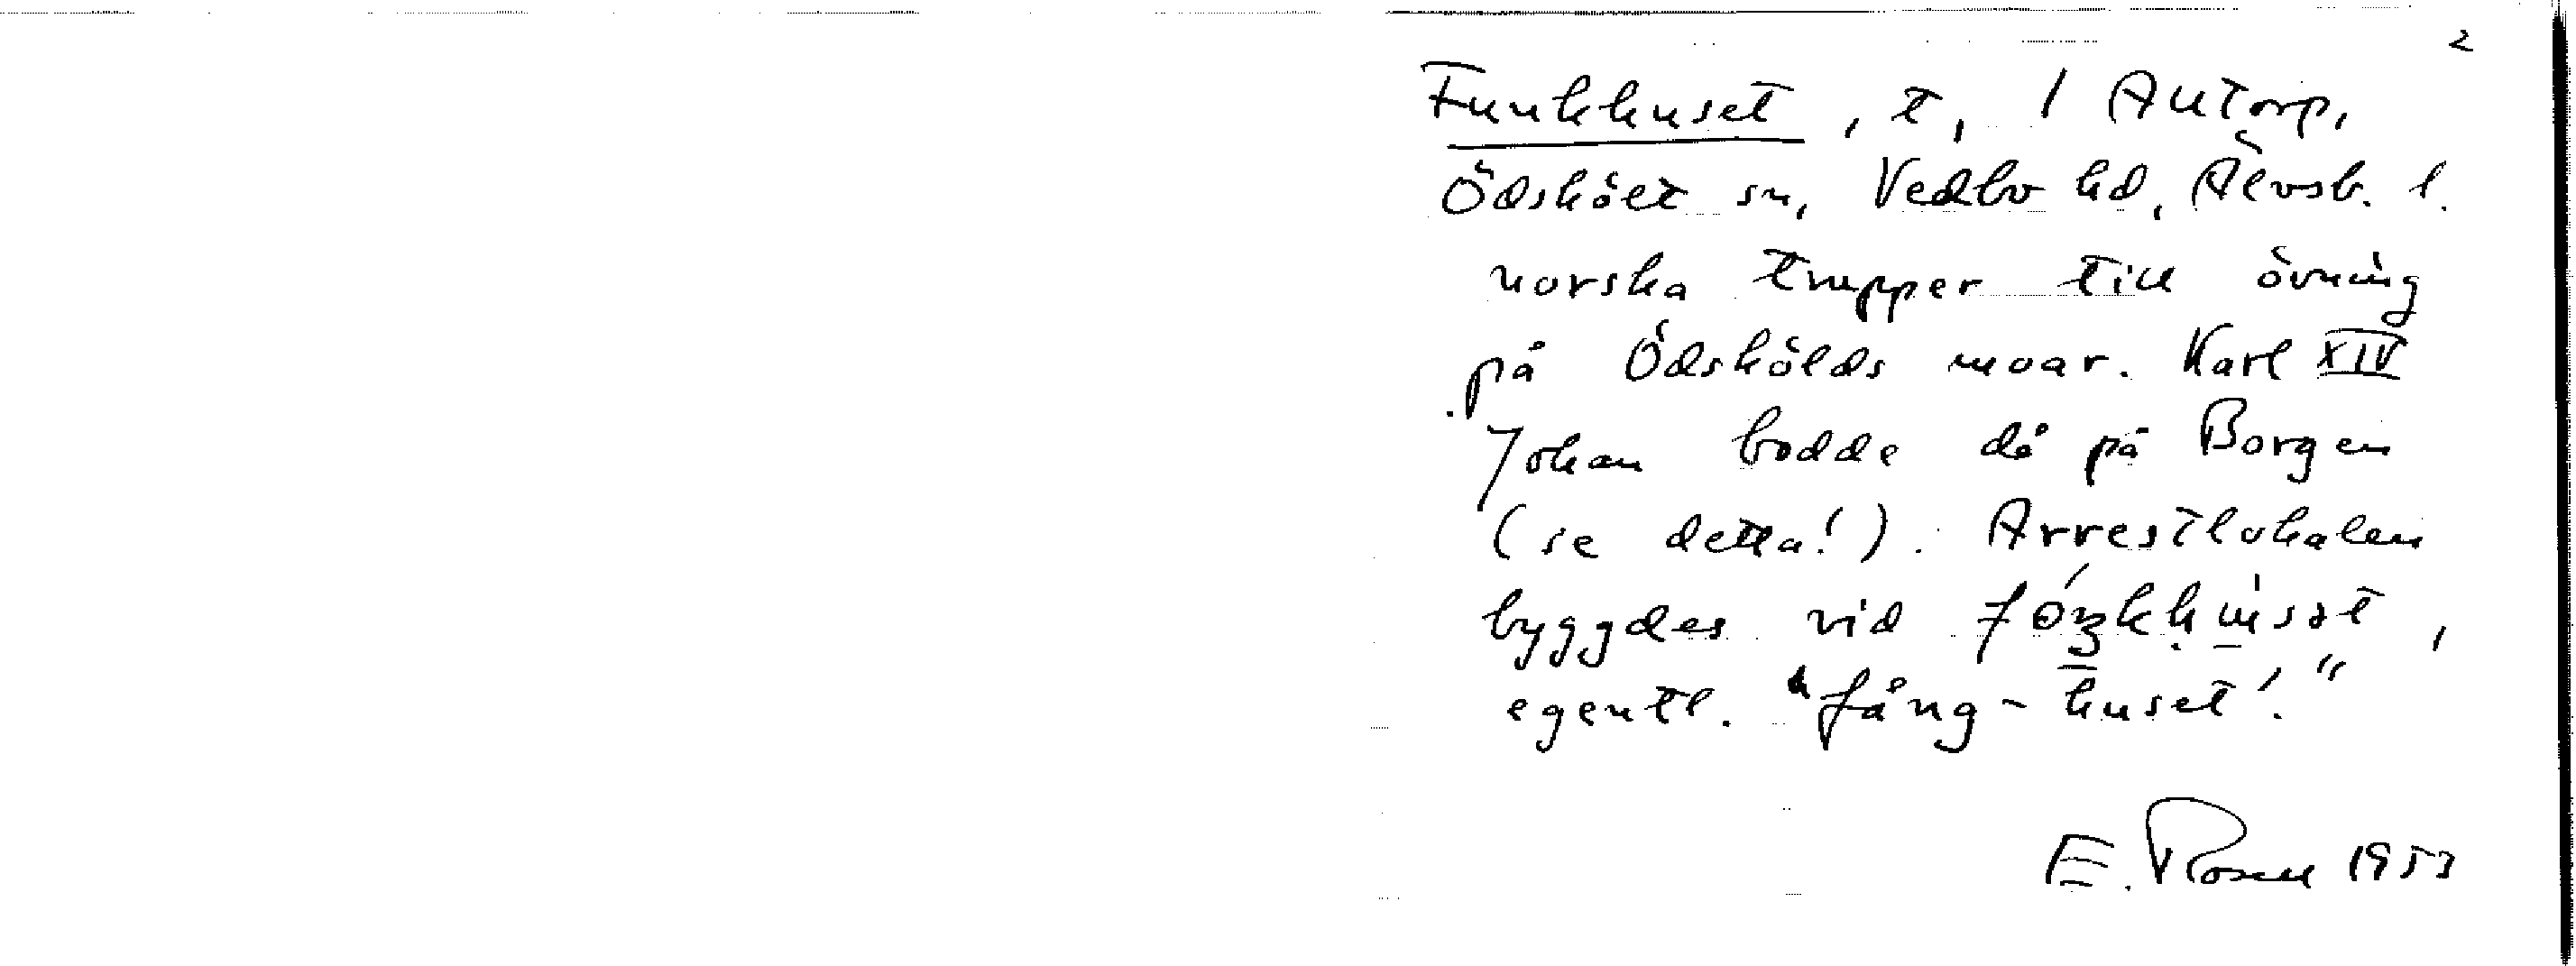 2
Funkhuset, t, 1 Autorp,
Ödskölt sn, Vedbo hd, Älvsb. l.
norska trupper till övning
på Ödskölds moar. Karl XIV
Johan bodde då på Borgen
(se detta!). Arrestlokalen
byggdes vid
egentl. "fång-huset!"
E. Rosen 1953